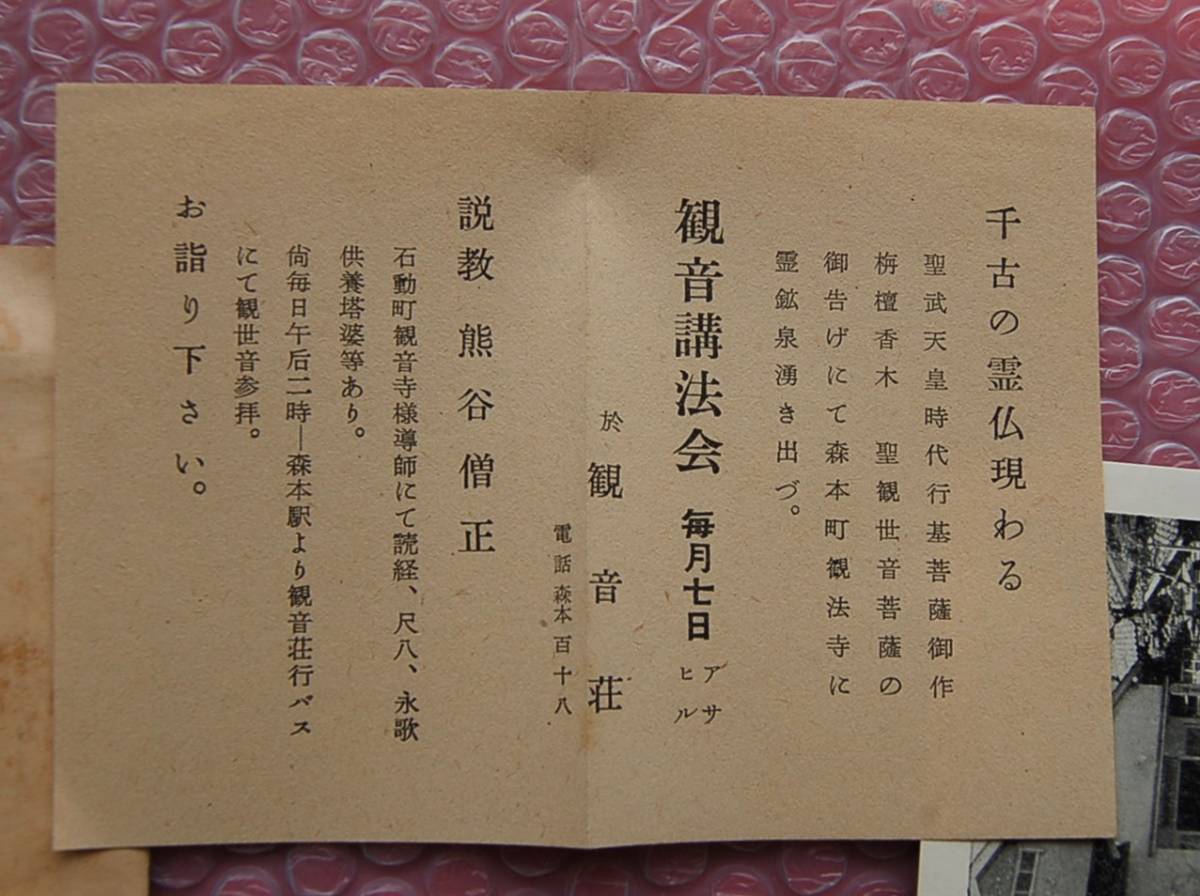 千古の霊仏現わる
聖武天皇時代行基菩薩御作
栴檀香木　聖観世音菩薩の
御告げにて森本町観法寺に
霊鉱泉湧き出づ。
観音講法会　毎月七日　アサ　ヒル
於　観音荘
電話森本百十八
説教　熊谷僧正
石動町観音寺様導師にて読経、尺八、永歌
供養塔婆等あり。
尙毎日午后二時―森本駅より観音荘行バス
にて観世音参拝。
お詣り下さい。